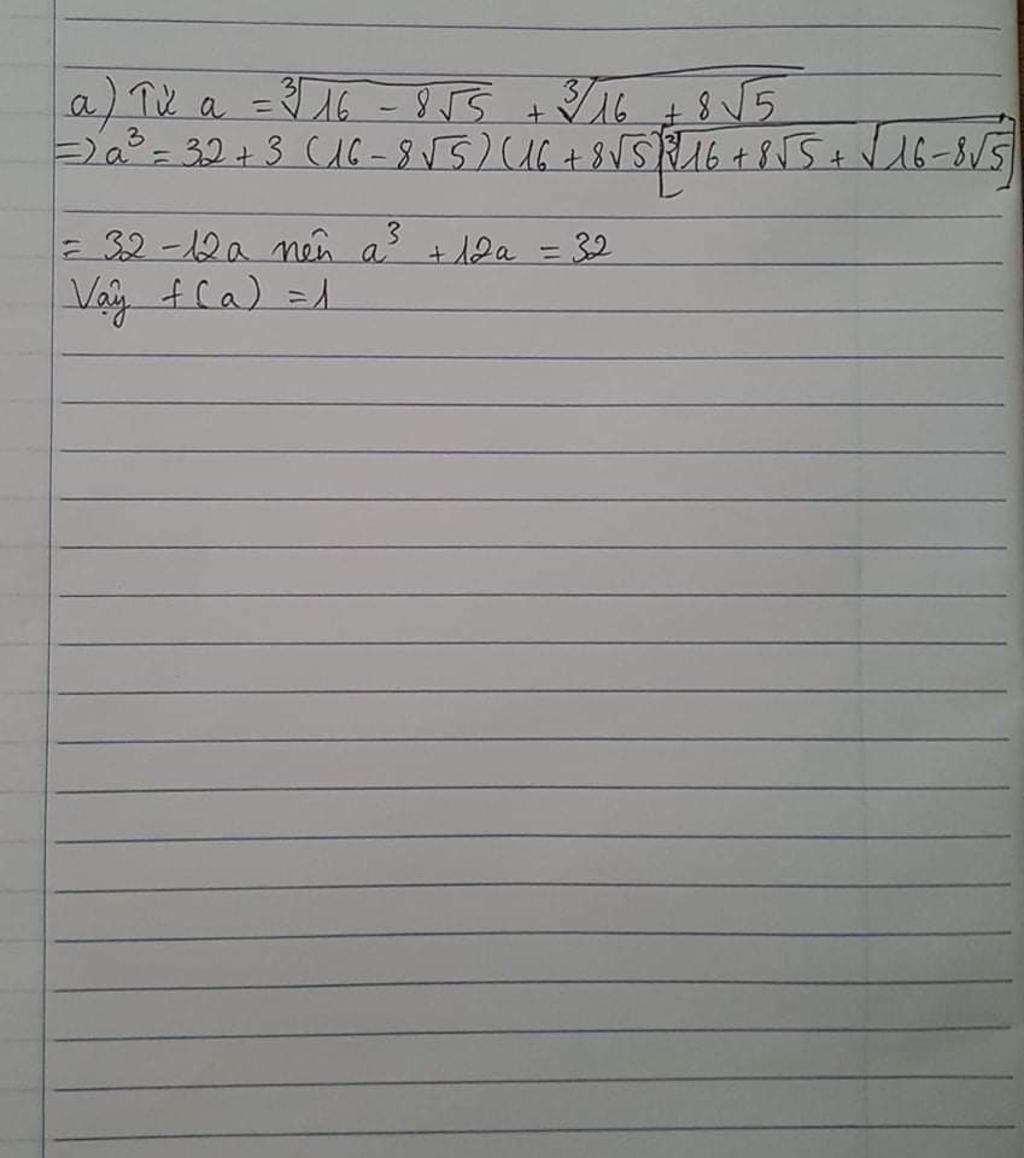 a) Từ a = ∛(16 - 8√5) + ∛(16 + 8√5)
=> a³ = 32 + 3 (16 - 8√5) (16 + 8√5) [∛(16 + 8√5) + √(16 - 8√5)]
= 32 - 12a nên a³ + 12a = 32
Vậy f(a) = 1